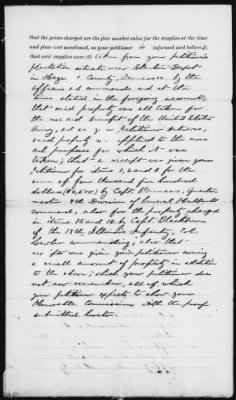 that the prices charged are the fair market value for the supplies at the time
and place last mentioned, as your petitioner is informed and believes;
that said supplies were taken from your petitioner's
plantation situate near Station Depot
in County, Tennessee, by the
officers and commands and at the
time stated in the foregoing account;
that said property was all taken for
the use and benefit of the United States
Army, and as your Petitioner believes,
said property was applied to the
purposes for which it was
taken; that a receipt was given your
petitioner for items 1, 2 and 3 for the
sum of four thousand five hundred
dollars ($4,500) by Capt. Quarter
master Division of General
command, also for the property charged
in items 15 and 16 by Capt. Blackburn
of the 18th, Illinois Infantry, Col.
Lawler commanding; also that
receipts were given your petitioner
a small amount of property in addition
to the above; which your petitioner does
not now remember, all of which
your petitioner expects to show your
Honorable Commissions with the proof
submitted herewith.